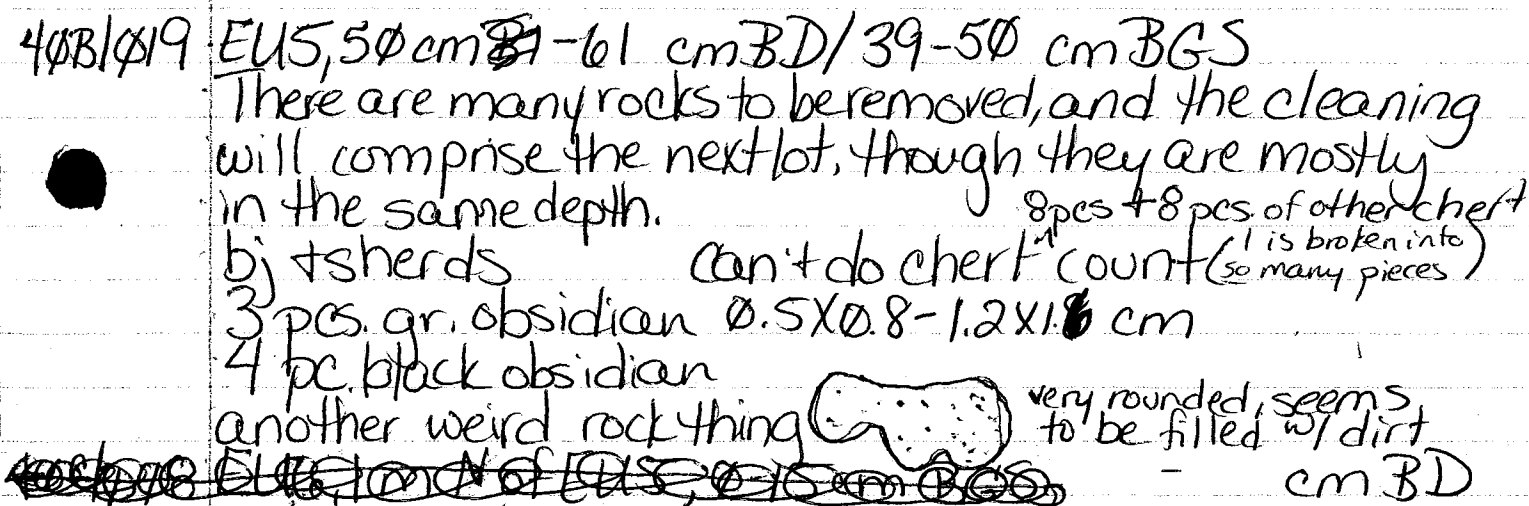 40B/019 EU5, 50 cm -61 cmBD/39-50 cmBGS
There are many rocks to be removed, and the cleaning
will comprise the next lot, though they are mostly
in the same depth.
8pcs + 8 pcs. of other chert
bj + sherds can't do chert ^ count (1 is broken into
so many pieces)
3 pcs. gr. obsidian 0.5X0.8-1.2X1.6 cm
4 pc. black obsidian
another weird rock thing very rounded, seems
to be filled w/ dirt
EU6, 1m N of EU5, 0-15 cm BGS. - cm BD